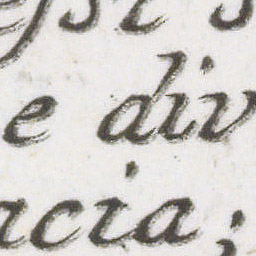 e div
acia;